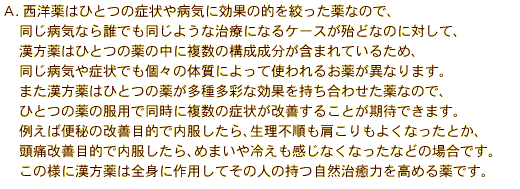 A. 西洋薬はひとつの症状や病気に効果の的を絞った薬なので、
同じ病気なら誰でも同じような治療になるケースが殆どなのに対して、
漢方薬はひとつの薬の中に複数の構成成分が含まれているため、
同じ病気や症状でも個々の体質によって使われるお薬が異なります。
また漢方薬はひとつの薬が多種多彩な効果を持ち合わせた薬なので、
ひとつの薬の服用で同時に複数の症状が改善することが期待できます。
例えば便秘の改善目的で内服したら、生理不順も肩こりもよくなったとか、
頭痛改善目的で内服したら、めまいや冷えも感じなくなったなどの場合です。
この様に漢方薬は全身に作用してその人の持つ自然治癒力を高める薬です。